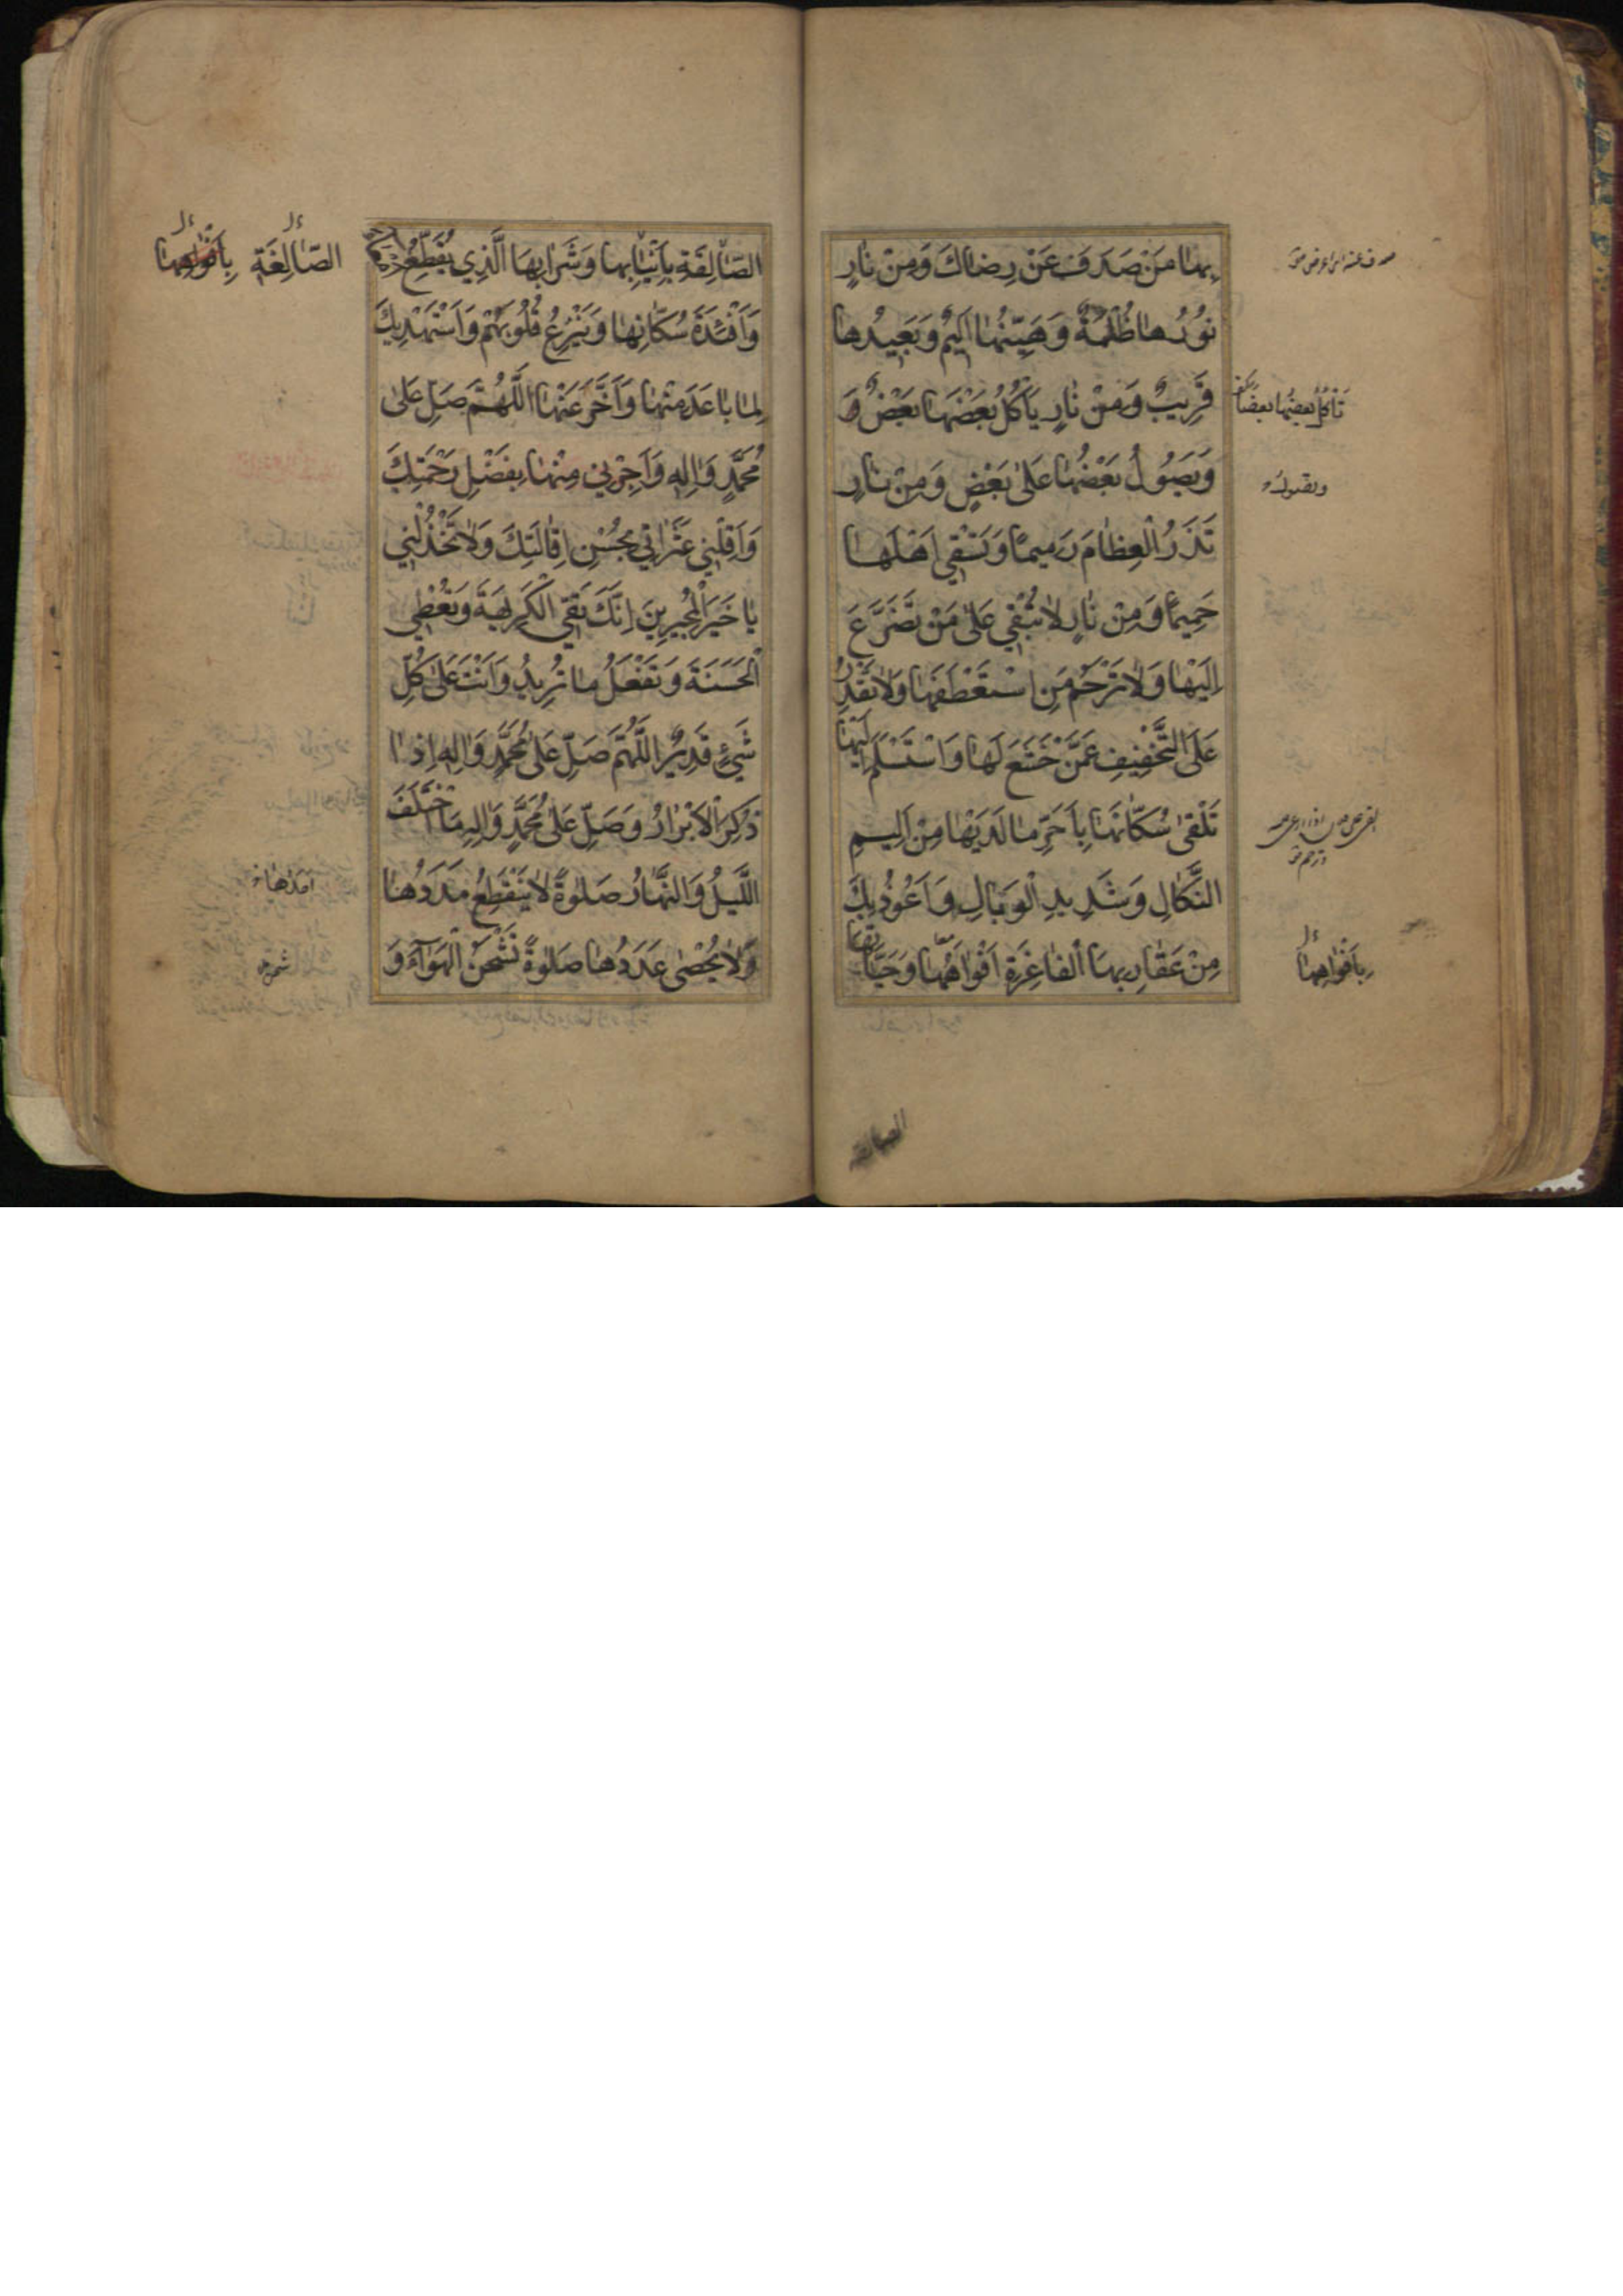 بِها مَنْ صَدَفَ عَنْ رِضاكَ وَمِنْ نارٍ
نُورُها ظُلْمَةٌ وَهَيِّنُها اَلِيمٌ وَبَعِيدُها
قَرِيبٌ وَمِنْ نارٍ يَأكُلُ بَعْضَها بَعْضٌ وَ
وَيَصُولُ بَعْضُها عَلىٰ بَعْضٍ وَمِنْ نارٍ
تَذَرُ الْعِظامَ رَمِيمًا وَتَسْقِي اَهْلَها
حَمِيمًا وَمِنْ نارٍ لا تُبْقِي عَلىٰ مَنْ تَضَرَّعَ
اِلَيْها وَلا تَرْحَمُ مَنِ اسْتَعْطَفَها وَلا تَقْدِرُ
عَلَى التَّخْفِيفِ عَمَّنْ خَشَعَ لَها وَاسْتَسْلَمَ اِلَيْها
تَلْقىٰ سُكّانَها بِاَحَرِّ ما لَدَيْها مِنْ اَلِيمِ
النَّكالِ وَشَدِيدِ الْوَبالِ وَاَعُوذُ بِكَ
مِنْ عَقارِبِها الْفاغِرَةِ اَفْواهُها وَحَيّاتِها
تَأكُلُ بعضُها بعضًا
بِاَفْواهِها
الصّالِقَةِ بِاَنْيابِها وَشَرابِهَا الَّذِي يُقَطِّعُ
وَاَفْئِدَةَ سُكّانِها وَيَنْزِعُ قُلُوبَهُمْ وَاَسْتَهْدِيكَ
لِما باعَدَ مِنْها وَاَخَّرَ عَنْها اَللّٰهُمَّ صَلِّ عَلىٰ
مُحَمَّدٍ وَاٰلِهِ وَاَجِرْنِي مِنْها بِفَضْلِ رَحْمَتِكَ
وَاَقِلْنِي عَثَراتِي بِحُسْنِ اِقالَتِكَ وَلا تَخْذُلْنِي
يا خَيْرَ الْمُجِيرِينَ اِنَّكَ تَقِي الْكَرِيهَةَ وَتُعْطِي
الْحَسَنَةَ وَتَفْعَلُ ما تُرِيدُ وَاَنْتَ عَلىٰ كُلِّ
شَيْءٍ قَدِيرٌ اَللّٰهُمَّ صَلِّ عَلىٰ مُحَمَّدٍ وَاٰلِهِ اِذا
ذُكِرَ الْاَبْرارُ وَصَلِّ عَلىٰ مُحَمَّدٍ وَاٰلِهِ مَا اخْتَلَفَ
اللَّيْلُ وَالنَّهارُ صَلٰوةً لا يَنْقَطِعُ مَدَدُها
وَلا يُحْصىٰ عَدَدُها صَلٰوةً تَشْحَنُ الْهَوآءَ وَ
الصّالِغَةِ بِاَفْواهِها
امدها